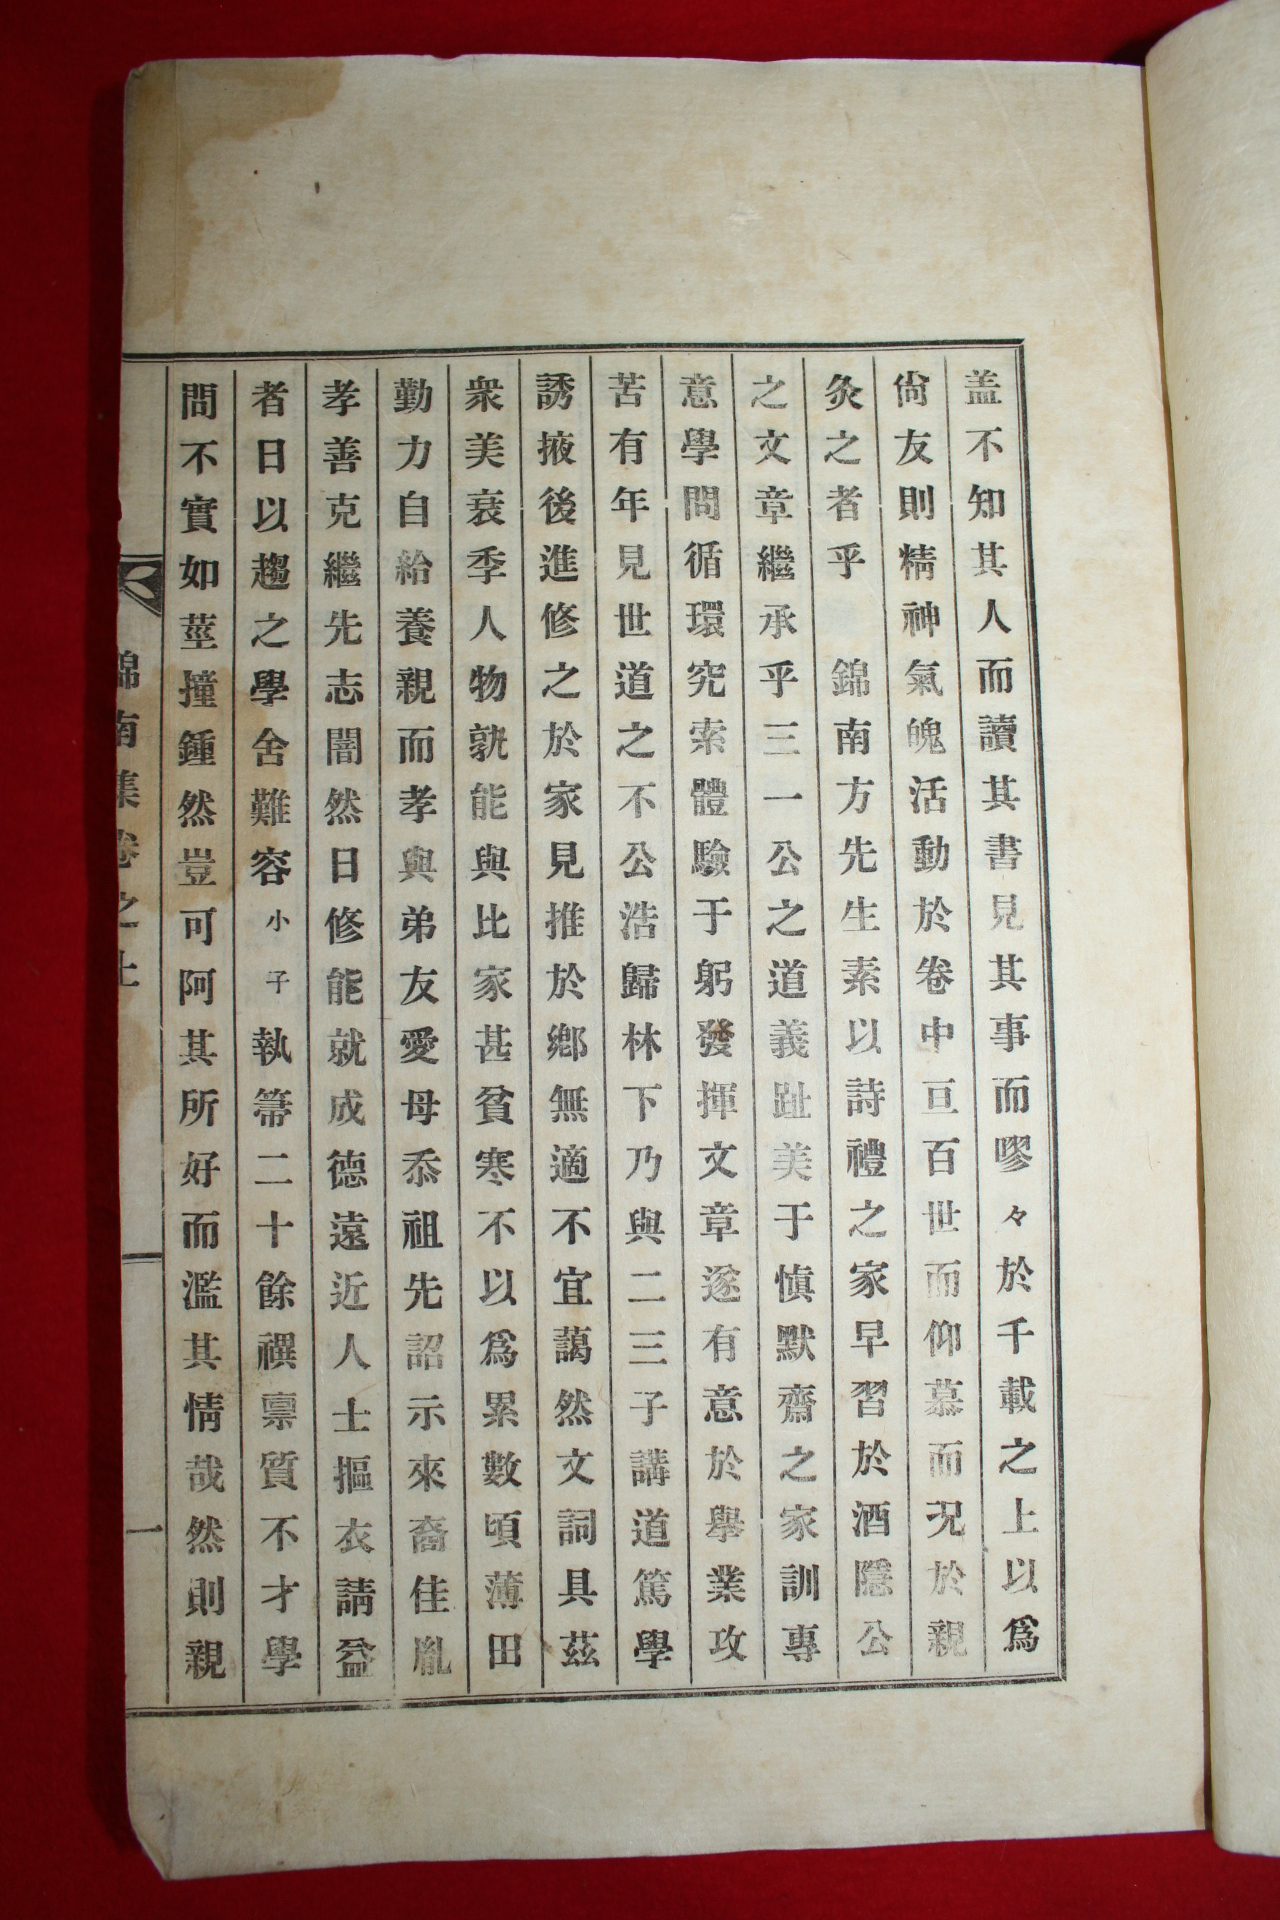 盖不知其人而讀其書見其事而嘐々於千載之上以爲
尙友則精神氣魄活動於卷中亘百世而仰慕而况於親
灸之者乎 錦南方先生素以詩禮之家早習於酒隱公
之文章繼承乎三一公之道義趾美于愼默齋之家訓專
意學問循環究索體驗于躬發揮文章遂有意於擧業攻
苦有年見世道之不公浩歸林下乃與二三子講道篤學
誘掖後進修之於家見推於鄕無適不宜藹然文詞具茲
衆美衰季人物孰能與比家甚貧寒不以爲累數頃薄田
勤力自給養親而孝與弟友愛母忝祖先詔示來裔佳胤
孝善克繼先志闇然日修能就成德遠近人士摳衣請益
者日以趨之學舍難容小子執箒二十餘禩禀質不才學
問不實如莛撞鍾然豈可阿其所好而濫其情哉然則親
錦南集卷之上 一